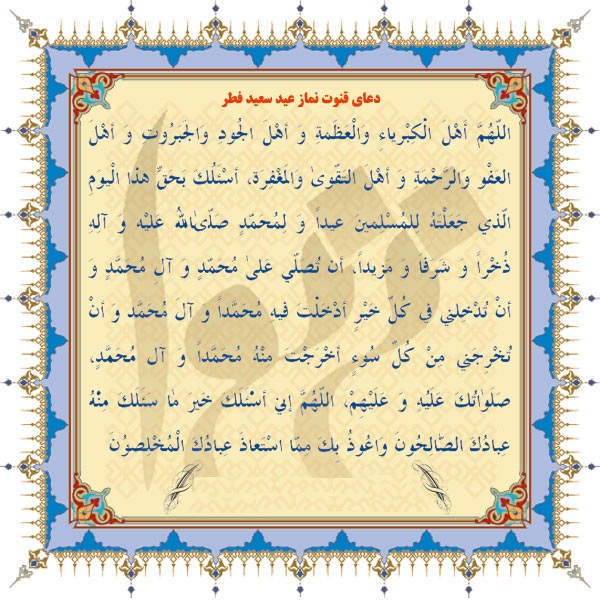 دعای قنوت نماز عید سعید فطر
اللّهُمَّ أهْلَ الْكِبْرِياءِ وَالْعَظَمَةِ وَ أهْلَ الجُودِ وَالجَبَرُوتِ وَ أهْلَ
العَفْوِ وَالرَّحْمَةِ وَ أهْلَ التَقْوىٰ وَالمَغْفِرَةِ، أسْئَلُكَ بَحَقِّ هٰذَا الْيَومِ
الَّذي جَعَلْتَهُ لِلمُسْلِمينَ عيداً وَ لِمُحَمّدٍ صَلَّى‌اللهُ عَلَيْهِ وَ آلِهِ
ذُخْراً وَ شَرَفاً وَ مَزيداً، أن تُصَلّي عَلىٰ مُحَمّدٍ وَ آلِ مُحَمَّدٍ وَ
أنْ تُدْخِلني في كُلِّ خَيْرٍ أدْخَلْتَ فيهِ مُحَمَّداً وَ آلَ مُحَمَّد وَ أنْ
تُخْرِجَني مِنْ كُلِّ سُوءٍ أخْرَجْتَ مِنْهُ مُحَمَّداً وَ آلَ مُحَمَّدٍ،
صَلَواتُكَ عَلَيْهِ وَ عَلَيْهِمْ. اللّهُمَّ إنّي أسْئَلُكَ خَيرَ مٰا سَئَلَكَ مِنْهُ
عِبادُكَ الصّالِحُونَ وَاعُوذُ بِكَ مِمّا اسْتَعاذَ عِبادُكَ الْمُخْلِصوُنَ